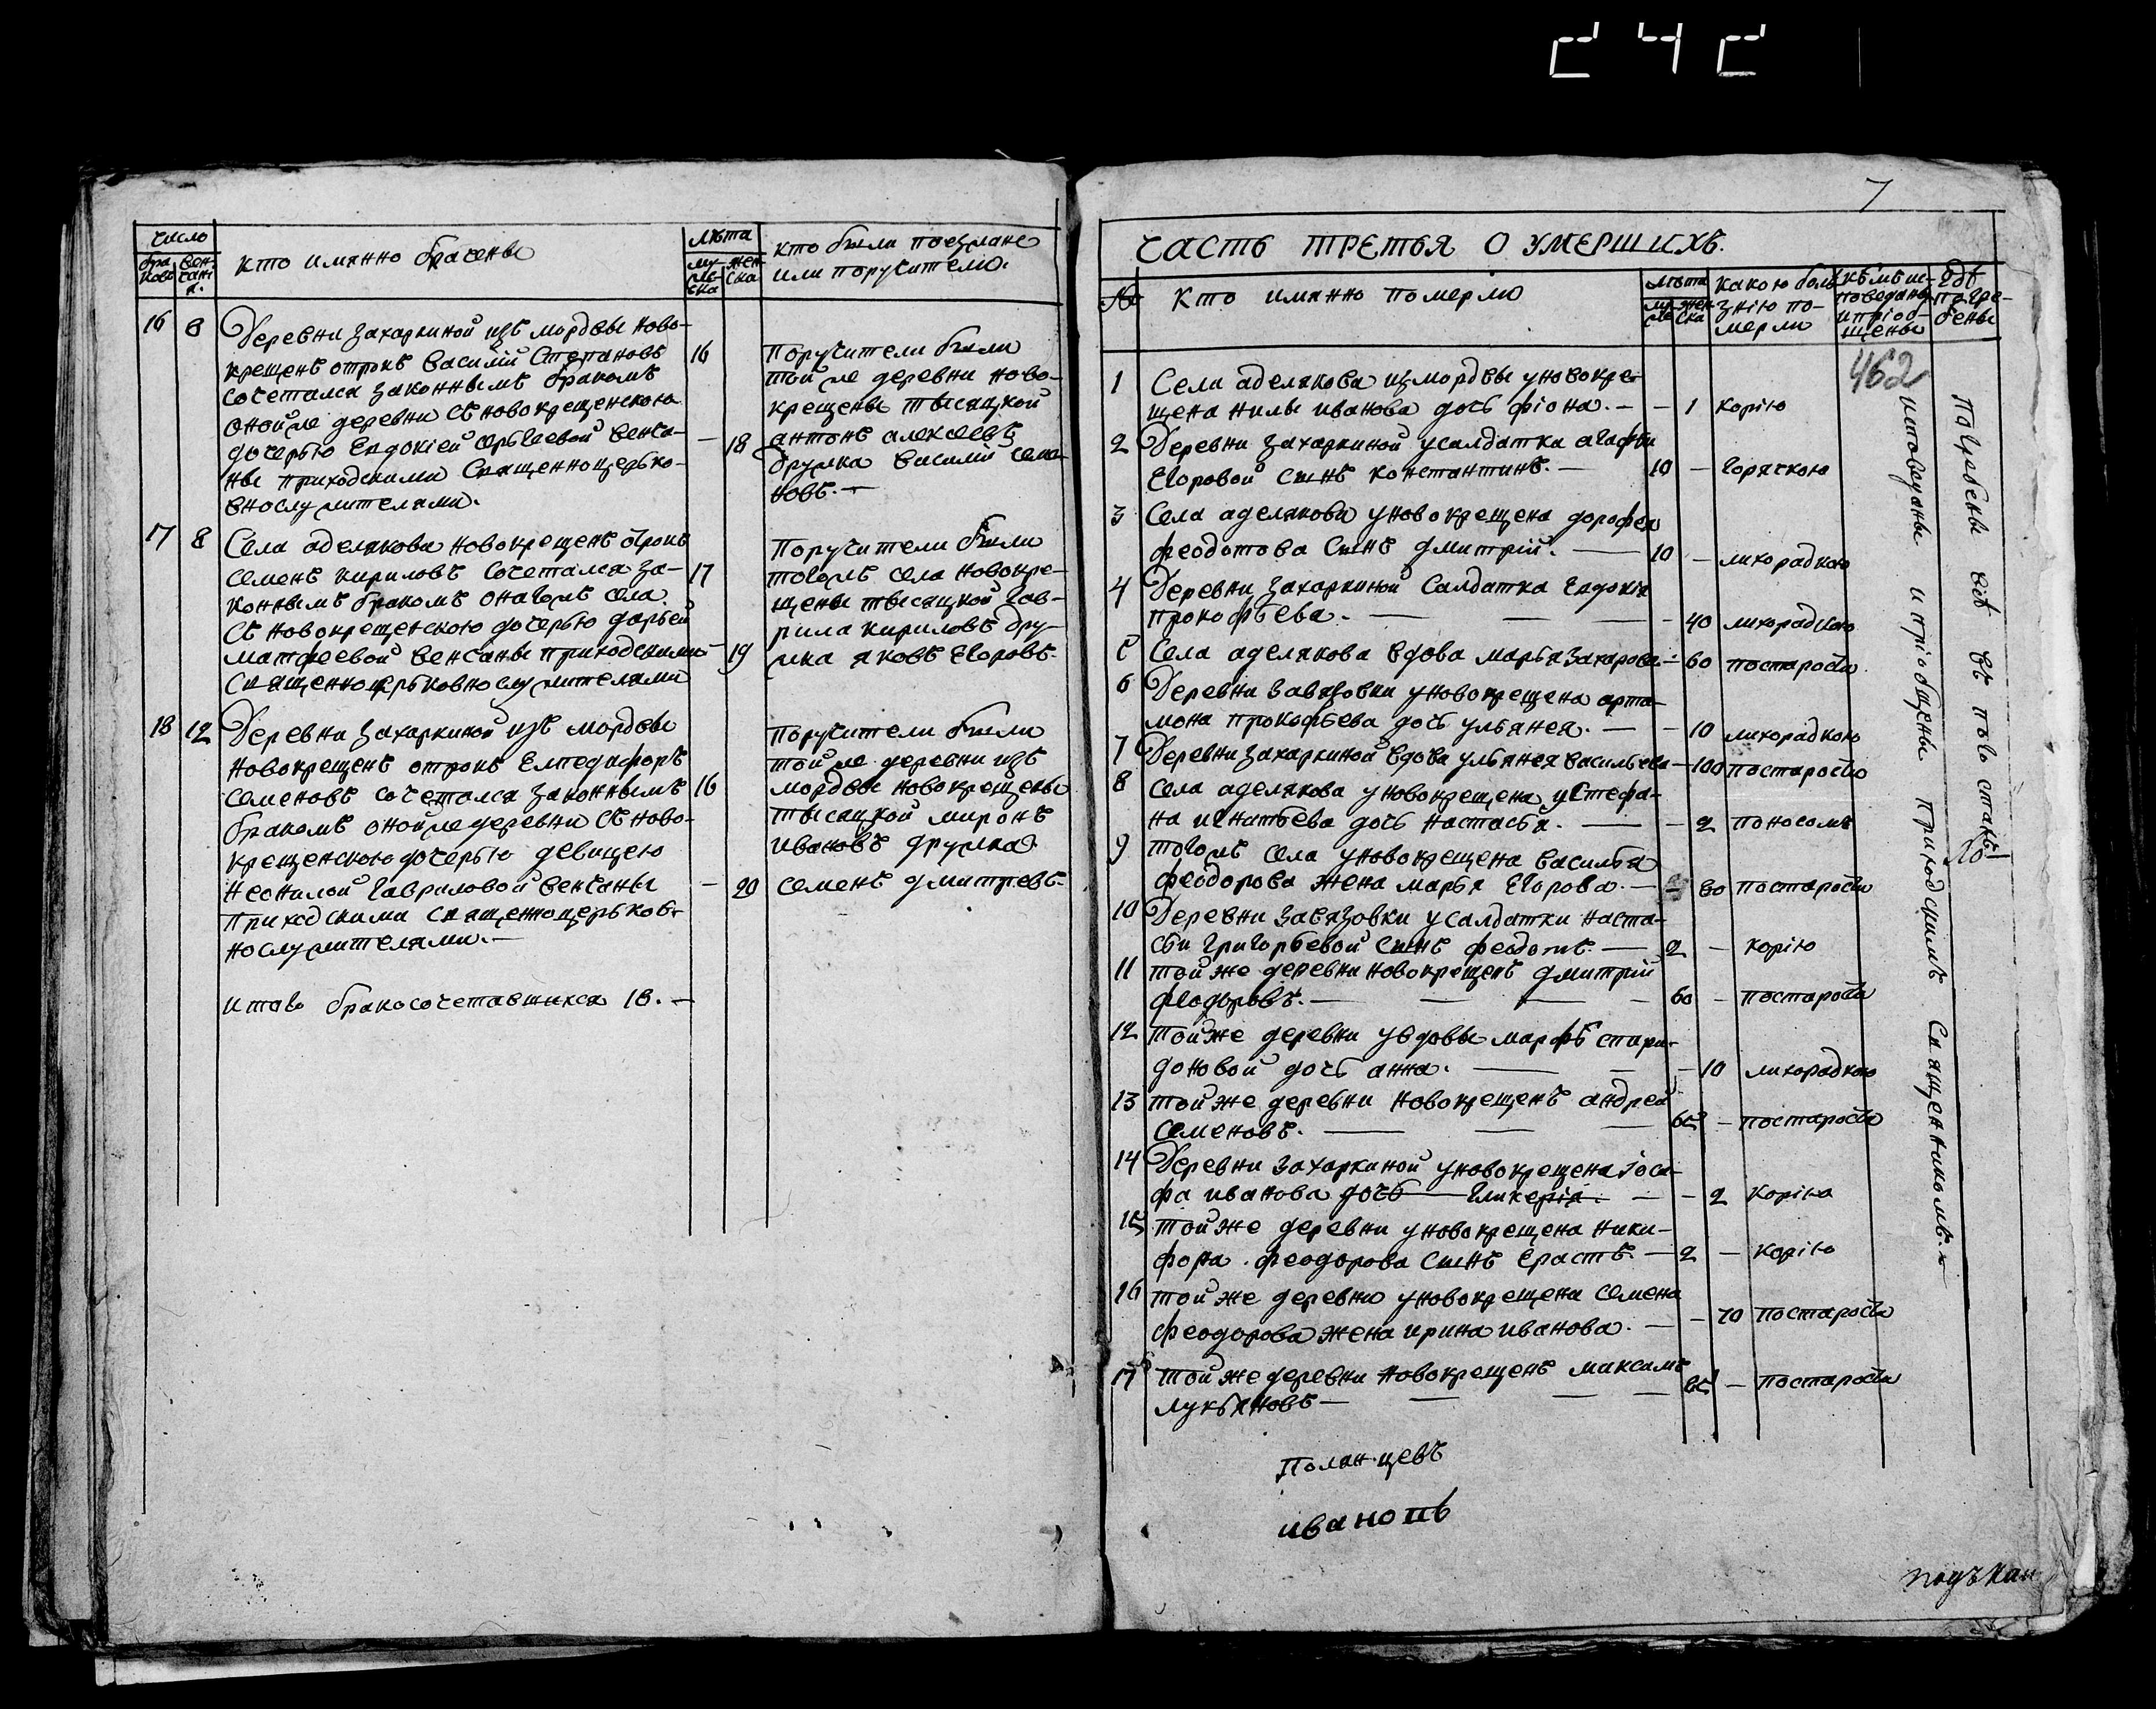 7
число
бра ковъ
вен чани я.
кто имянно брачены
лѣта
му жес ка
жен ска
кто были поезжане
или поручители.
16 8 Деревни захаркиной изъ мордвы ново-
крещенъ отрокъ василїй Степановъ 16
сочетался законнымъ бракомъ
оной же деревни съ новокрещенскою
дочерью Евдокїей сергѣевой венча- — 18
ны приходскими Священноцерько-
внослужителями.
Поручители были
той же деревни ново-
крещены тысяцкой
антонъ алексеевъ
дружка василїй семе-
новъ. —
17 8 Села аделякова новокрещенъ отрокъ
семенъ кириловъ сочетался за- 17
коннымъ бракомъ онагожъ села
съ новокрещенскою дочерью дарьей
матфеевой венчаны приходскими — 19
священноцерьковнослужителями
Поручители были
тогожъ села новокре-
щены тысяцкой гав-
рила кириловъ дру-
жка яковъ Егоровъ.
18 12 Деревни захаркиной изъ мордвы
новокрещенъ отрокъ Елпедифоръ
семеновъ сочетался законнымъ 16
бракомъ оной же деревни съ ново-
крещенскою дочерью девицею
неонилой гавриловой венчаны — 20
приходскими священноцерьков-
нослужителями. —
Поручители были
той же деревни изъ
мордвы новокрещены
тысяцкой миронъ
ивановъ дружка
семенъ дмитревъ.
итаво бракосочетавшихся 18. —
ЧАСТЬ ТРЕТЬЯ О УМЕРШИХЪ.
№
Кто имянно померло
лѣта
му же
жен ска
какою боль
знїю по-
мерли
кѣмъ ис-
поведаны
и прїоб-
щены
гдѣ
погре-
бены
462
1 Села аделякова измордвы уновокре-
щена нилы иванова дочь фїона. — — 1 корїю
2 Деревни захаркиной усалдатка агафьи
Егоровой сынъ константинъ. — 10 — горячкою
3 Села аделякова уновокрещена дорофея
феодотова Сынъ дмитрїй. — 10 — лихорадкою
4 Деревни захаркиной Салдатка Евдокїя
прокофьева. — — — — 40 лихорадкою
5 Села аделякова вдова марья захарова. — 60 постарости
6 Деревни завязовки уновокрещена арта-
мона прокофьева дочь ульянея. — — 10 лихорадкою
7 Деревни захаркиной вдова ульянея васильева — 100 постарости
8 села аделякова уновокрещена устефа-
на игнатьева дочь настасья. — — 2 поносомъ
9 тогожъ села уновокрещена василья
феодорова жена марья Егорова. — — 80 постарости
10 Деревни завязовки усалдатки наста-
сьи григорьевой сынъ феодотъ. — 2 — корїю
11 той же деревни новокрещенъ дмитрїй
феодоровъ. — — — — 60 — постарости
12 той же деревни увдовы марфы спири-
доновой дочь анна. — — — 10 лихорадкою
13 той же деревни новокрещенъ андрей
семеновъ. — — — 65 — постарости
14 Деревни захаркиной уновокрещена їоси-
фа иванова дочь гликерїя. — — 2 корїю
15 той же деревни уновокрещена ники-
фора феодорова сынъ Ерастъ. — 2 — корїю
16 той же деревни уновокрещена семена
феодорова жена ирина иванова. — — 70 постарости
17 той же деревни новокрещенъ максимъ
лукьяновъ — — — — 65 — постарости
исповеданы и прїобщены приходскимъ Священникомъ. —
Погребены всѣ въ
полянцевъ
ивановъ